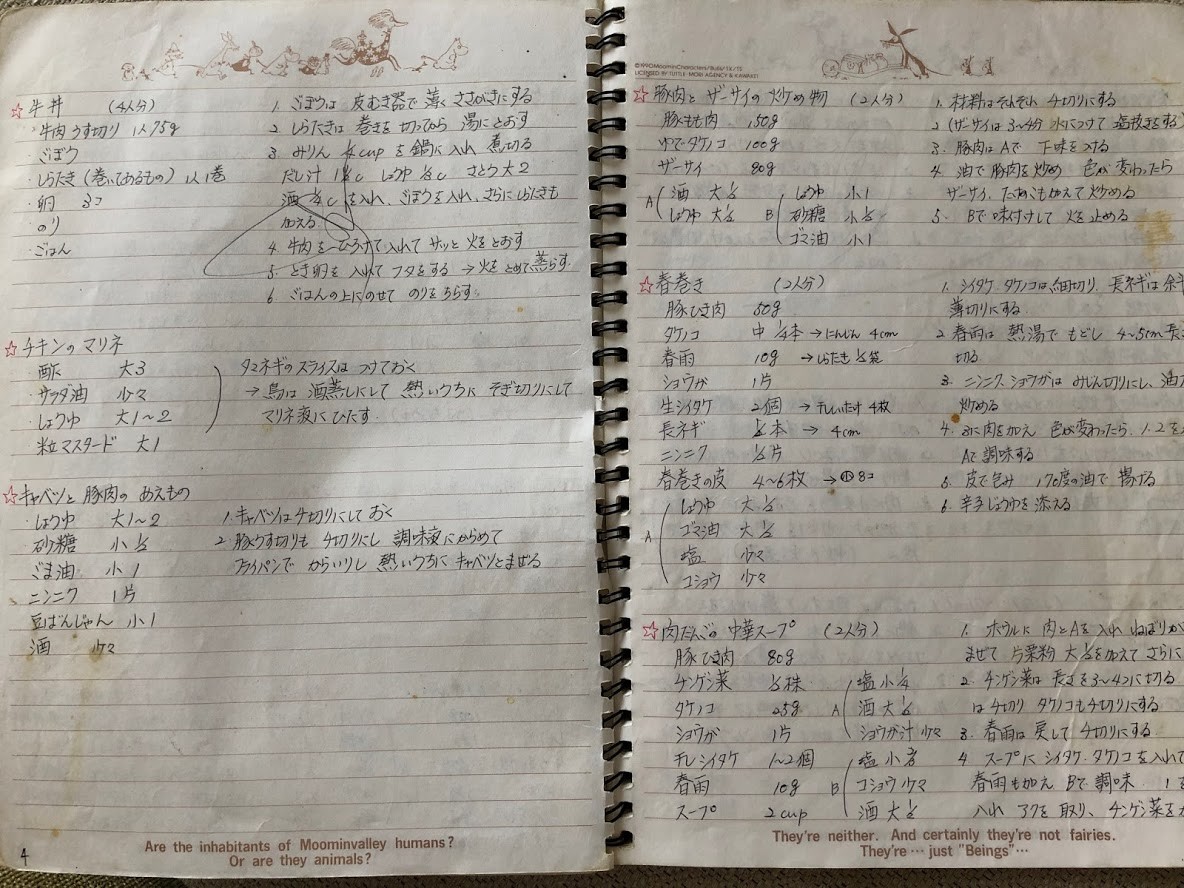 ☆牛丼 (4人分)
・牛肉うす切り 1人75g
・ごぼう
・しらたき(巻いてあるもの) 1人1巻
・卵 3コ
・のり
・ごはん
1. ごぼうは 皮むき器で 薄く ささがきにする
2. しらたきは 巻きを 切ってから 湯にとおす
3. みりん cup を鍋に入れ 煮切る
だし汁 しょうゆ さとう大2
酒 を入れ、ごぼうを入れ、さらにしらたきも
加える
4. 牛肉を ひろげて入れて サッと 火を とおす
5. とき卵を 入れて フタをする →火を とめて蒸らす
6. ごはんの上にのせて のりを ちらす
☆チキンの マリネ
酢 大3
サラダ油 少々
しょうゆ 大1〜2
粒マスタード 大1
タマネギのスライスは つけておく
→鳥は 酒蒸しにして 熱いうちに そぎ切りにして
マリネ液に ひたす
☆キャベツと 豚肉の あえもの
しょうゆ 大1〜2
砂糖 小½
ごま油 小1
ニンニク 1片
豆ばんじゃん 小1
酒 少々
1. キャベツは 千切りにして おく
2. 豚うす切りも 千切りにし 調味液にからめて
フライパンで からいりし 熱いうちに キャベツとまぜる
4
Are the inhabitants of Moominvalley humans?
Or are they animals?
©1990MoominCharacters/Bulls/TX/TS
LICENSED BY TUTTLE-MORI AGENCY & KAWAKEI
☆豚肉と ザーサイの 炒め物 (2人分)
豚もも肉 150g
ゆでタケノコ 100g
ザーサイ 80g
A 酒 大½
しょうゆ 大½
B しょうゆ 小1
砂糖 小½
ゴマ油 小1
1. 材料はそれぞれ 千切りにする
2 (ザーサイは 3〜4分 水につけて 塩抜きをする)
3. 豚肉は Aで 下味を つける
4. 油で 豚肉を炒め 色が 変わったら
ザーサイ、たけのこも加えて 炒める
5. Bで 味付けして 火を 止める
☆春巻き (2人分)
豚ひき肉 50g
タケノコ 中 ¼本 →にんじん 4cm
春雨 10g →しらたき ½袋
ショウガ 1片
生シイタケ 2個 →干しいたけ 4枚
長ネギ ½本 → 4cm
ニンニク ½片
春巻きの皮 4〜6枚 → 8コ
A しょうゆ 大½
ゴマ油 大½
塩 少々
コショウ 少々
1. シイタケ、タケノコは、細切り、長ネギは
薄切りにする
2. 春雨は 熱湯で もどし 4〜5cm長
切る
3. ニンニク、ショウガは みじん切りにし、油
炒める
4. 3に肉を加え 色が変わったら、1.2を
Aで 調味する
5. 皮で包み 170度の油で 揚げる
6. 辛子じょうゆを 添える
☆肉だんごの 中華スープ (2人分)
豚ひき肉 80g
チンゲン菜 ½株
タケノコ 25g
ショウガ 1片
干しシイタケ 1〜2個
春雨 10g
スープ 2cup
A 塩 小¼
酒 大½
ショウガ汁 少々
B 塩 小
コショウ 少々
酒 大½
1. ボウルに 肉とAを 入れ ねばりが
まぜて 片栗粉 大½を加えて さらに
2. チンゲン菜は 長さを3〜4つに切る
は千切り タケノコも千切りにする
3. 春雨は 戻して 千切りにする
4 スープに シイタケ・タケノコを 入れて
春雨も加え Bで 調味 1を
入れ アクを 取り、チンゲン菜を
They're neither. And certainly they're not fairies.
They're… just "Beings"…